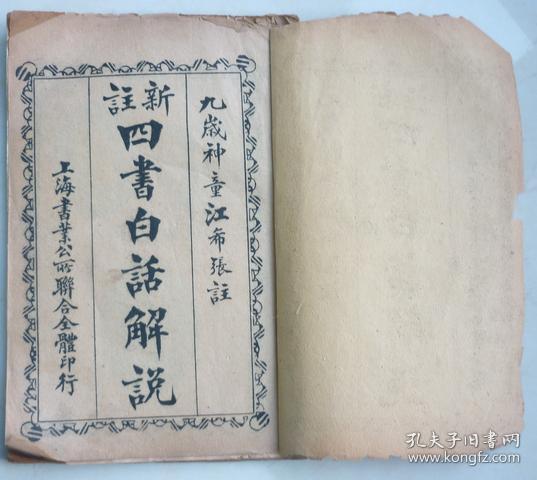 九歲神童江希張註
新註
四書白話解説
上海書業公所聯合全體印行
孔夫子旧书网
www.kongfz.com